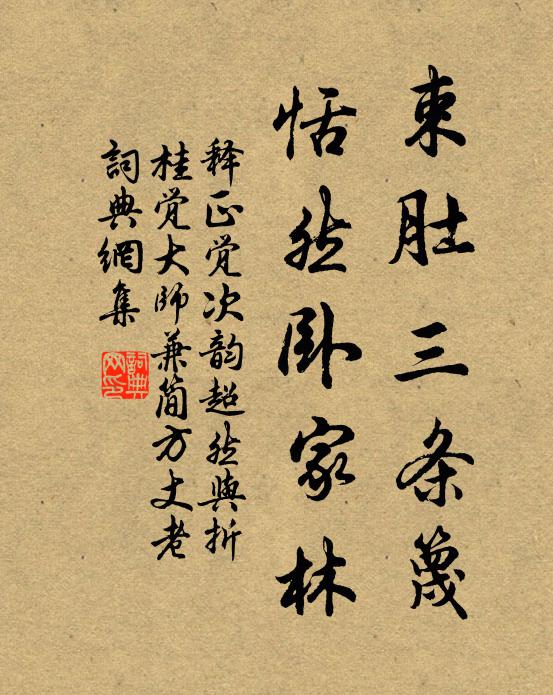 束肚三条篾
恬然卧家林
释正觉次韵超然与折
桂觉大师兼简方丈老
詞典網集
詞典網印